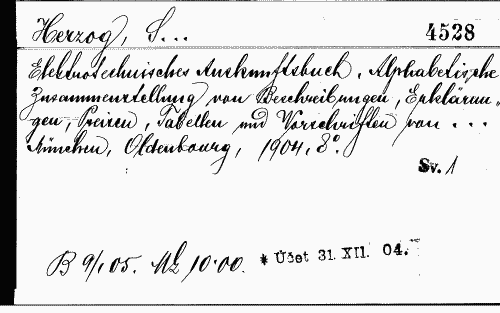 Herzog, S...
4528
Elektrotechnisches Auskunftsbuch. Alphabetische
Zusammenstellung von Beschreibungen, Erklärun-
gen, Preisen, Tabellen und Vorschriften von ...
München, Oldenbourg, 1904, 8°.
Sv. 1
B 9/I 05. Mk 10·00. * Účet 31. XII. 04.